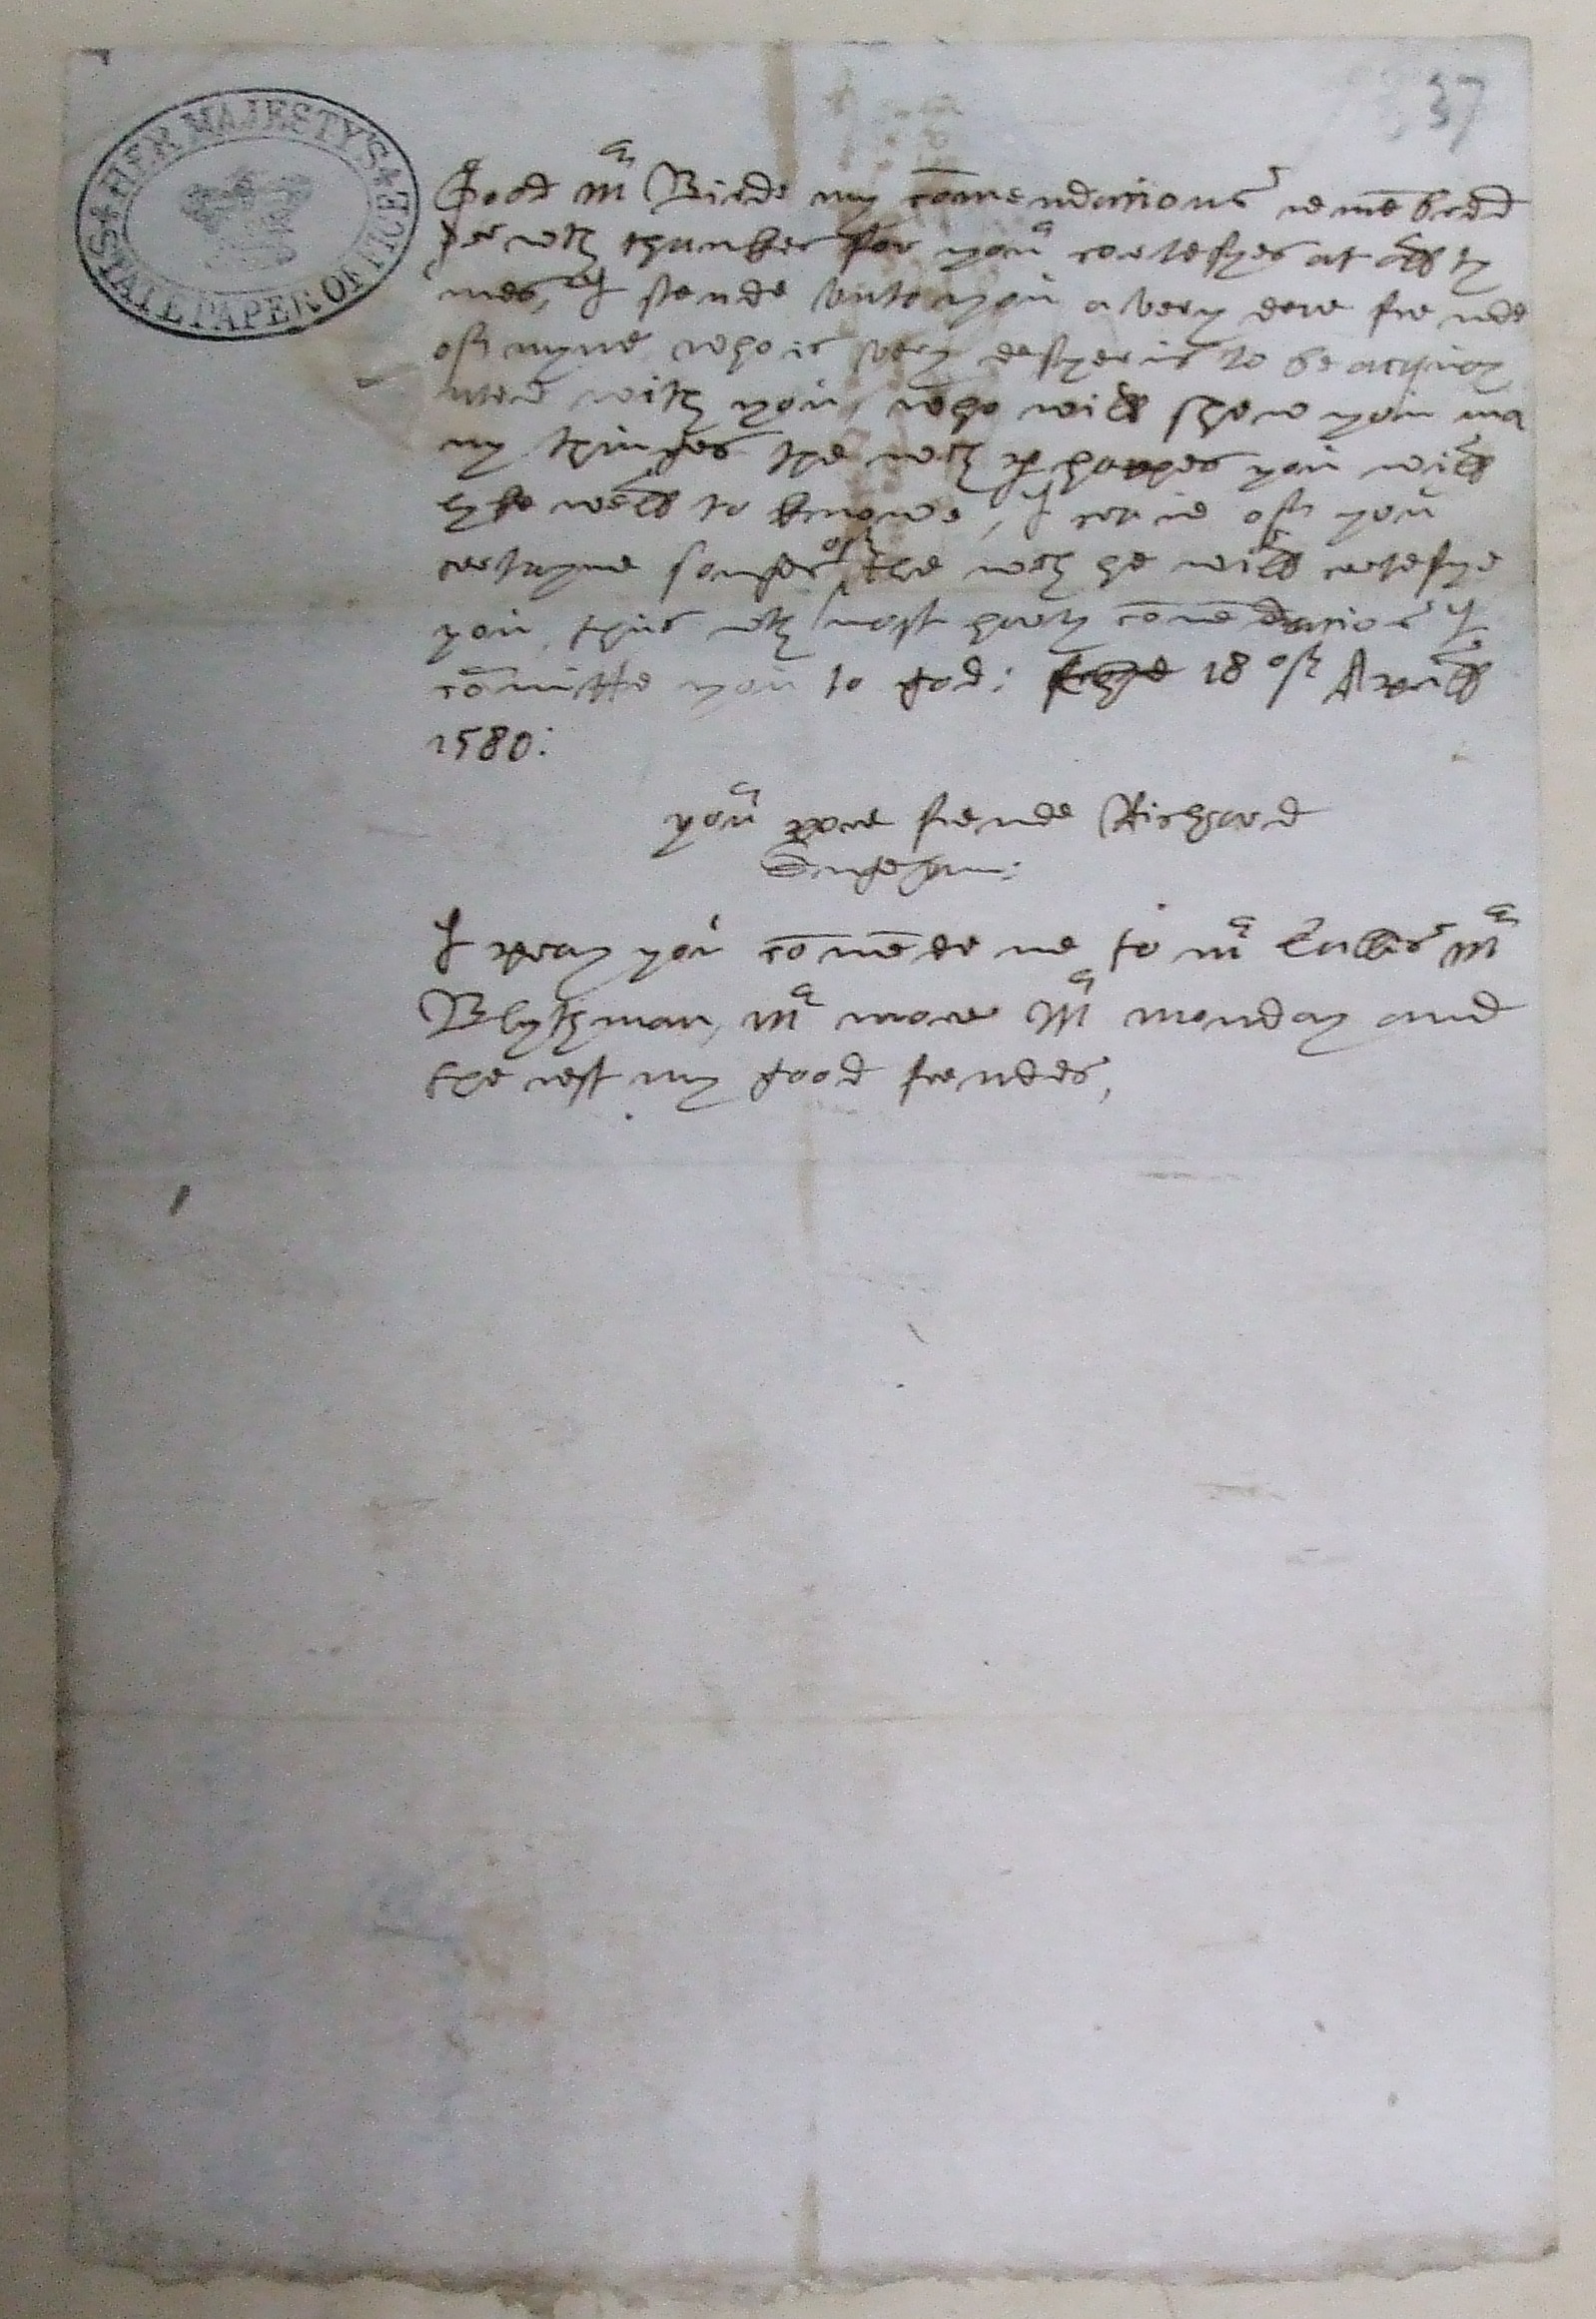 37
HER MAJESTY'S STATE PAPER OFFICE
Good mr Birde my cōmendations remēbred
wth thankes for your cortesyes at all ty
mes, I sende vnto you a very dere frende
of myne who is very desyerus to be acquay
nted with you, who will shew you ma
ny thinges the wch p happes you will
lyke well to knowe, I crave of you
certayne songes of the wch he will certefye
you, thus wth most harty cōmēdations I
cōmitte you to god: 18 of Aprill
1580:
your pore frende Richard
I pray you cōmēde me to mr mr
Blythman, mr more mr monday and
the rest my good frendes,